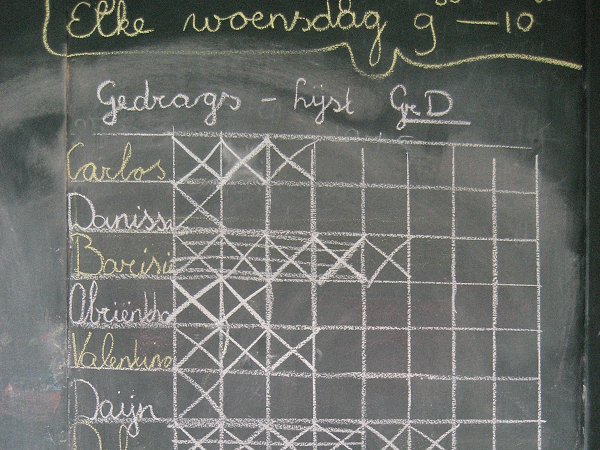 Elke woensdag 9 — 10
Gedrags - lijst Gr. D
Carlos
Danissa
Barisi
Abriëntso
Valentino
Daijn